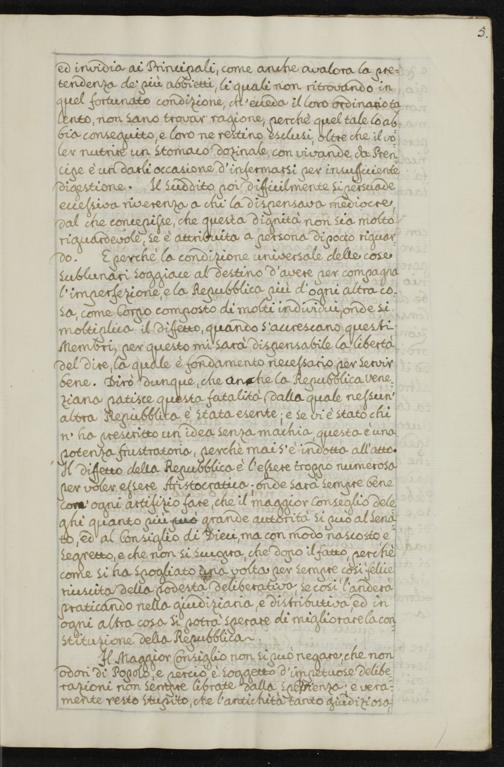 5.
ed invidia ai Principali, come anche avalora la pre-
tendenza de' più abbietti, li quali non ritrovando in
quel fortunato condizione, ch'eceda il loro ordinario ta
lento, non sano trovar ragione, perchè quel tale lo ab-
bia conseguito, e loro ne restino esclusi, oltre che il vo-
ler nutrire un stomaco dozinale, con vivande da Pren-
cipe è un darli occasione d'infermarsi per insufficiente
digestione. Il suddito poi difficilmente si persuade
eccessiva riverenza a chi la dispensava mediocre,
dal che concepisse, che questa dignità non sia molto
riguardevole, se è attribuita a persona di poco riguar-
do. E perchè la condizione universale delle cose
sublunari soggiace al destino d'avere per compagna
l'imperfezione, e la Repubblica più d'ogni altra co-
sa, come Corpo composto di molti individui, onde si
moltiplica il difetto, quando s'accrescano questi
Membri, per questo mi sarà dispensabile la libertà
del dire, la quale è fondamento necessario per servir
bene. Dirò dunque, che anche la Repubblica Vene-
ziana patisce questa fatalità dalla quale nessun'
altra Repubblica è stata esente; e se vi è stato chi
n' ha prescritto un idea senza machia questa è una
potenza frustratoria, perchè mai s'è indotta all'atto.
Il diffetto della Repubblica è l'essere troppo numerosa
per voler essere Aristocratica: onde sarà sempre bene
con ogni artifizio fare, che il maggior Conseglio dele
ghi quanto più grande autorità si può al Sena
to, ed al Consiglio di Dieci, ma con modo nascosto e
segretto, e che non si scuopra, che dopo il fatto, perchè
come si ha spogliato una volta per sempre così felice
riuscita della podestà deliberativa, se così l'anderà
praticando nella giudiziaria, e distributiva, ed in
ogni altra cosa si potrà sperare di migliorare la con
stituzione della Repubblica.
Il Maggior Consiglio non si può negare, che non
odori di Popolo, e perciò è soggetto d'impetuose delibe
razioni non sempre librate dalla sperienza; e vera-
mente resto stupito, che l'antichità tanto giudiziosa